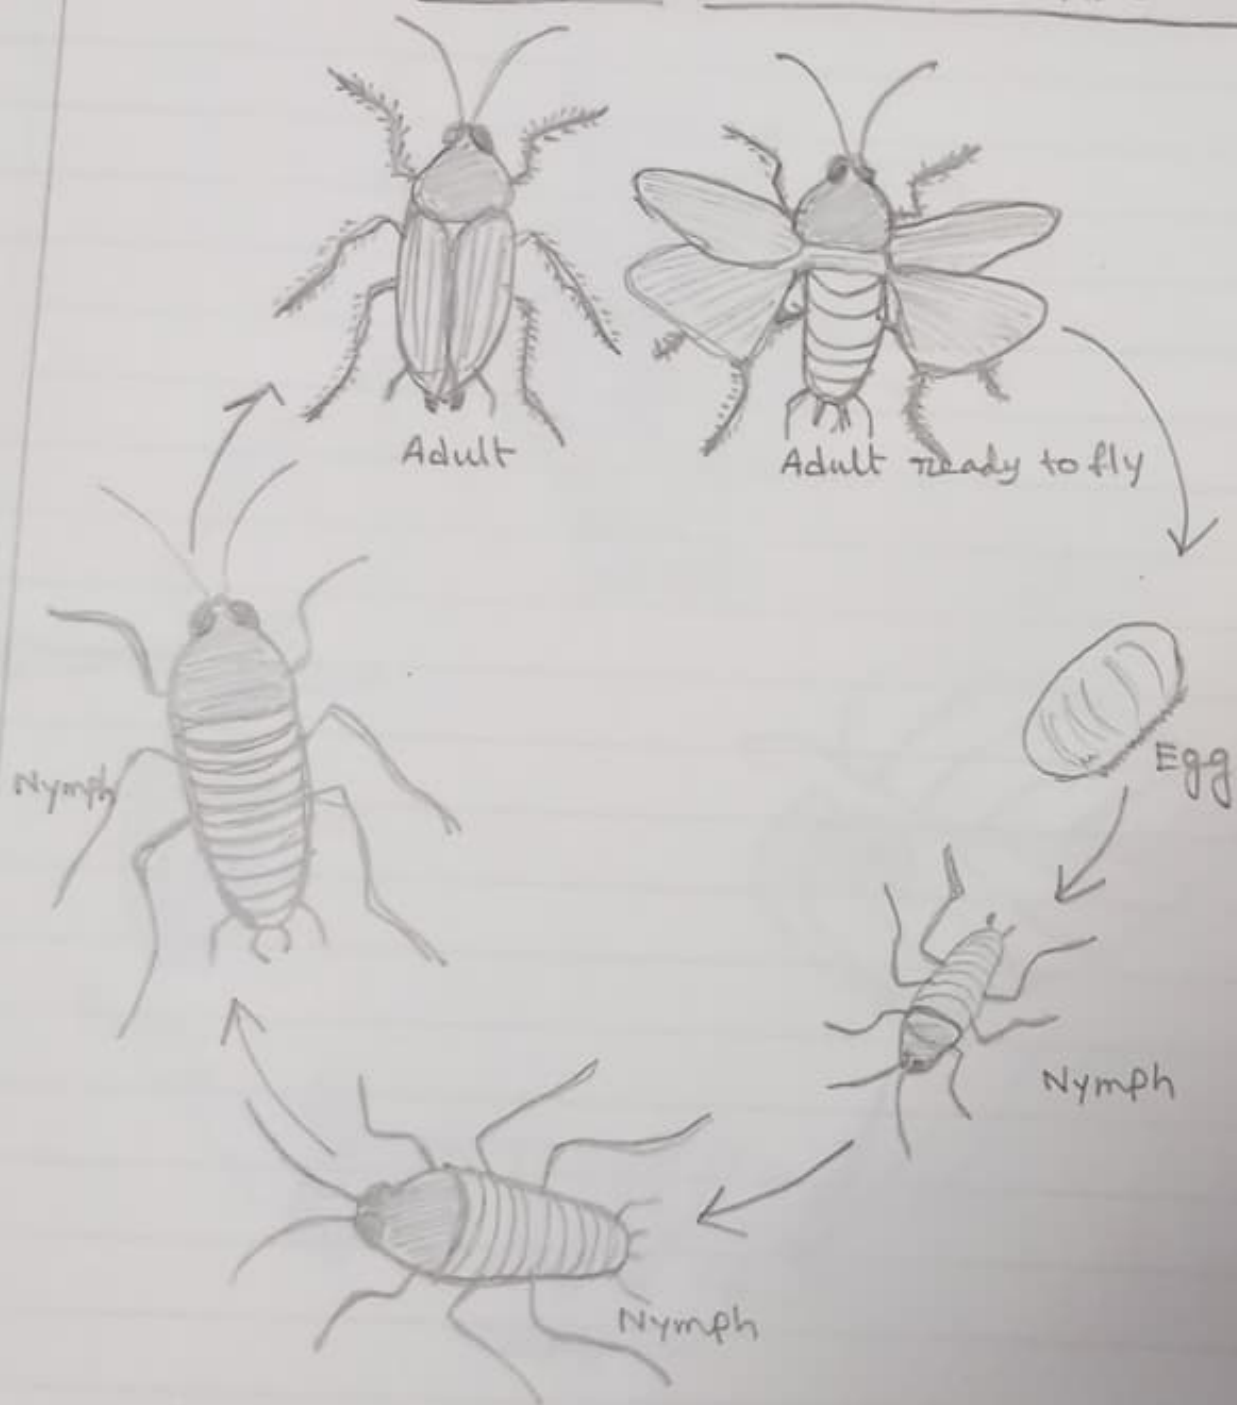 Adult
Adult ready to fly
Egg
Nymph
Nymph
Nymph